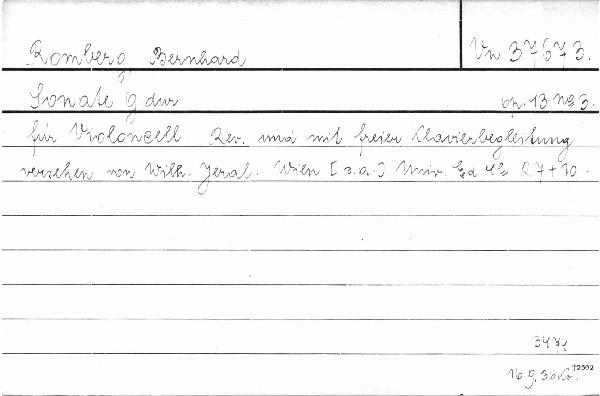 Romberg, Bernhard Vn 37673.
Sonate G dur op. 13 No 3.
für Violoncell Rev. und mit freier Clavierbegleitung
versehen von Wilh. Jeral. Wien [s.a.] Univ. Ed 4° 27+10.
3474
16.9.36
†2502